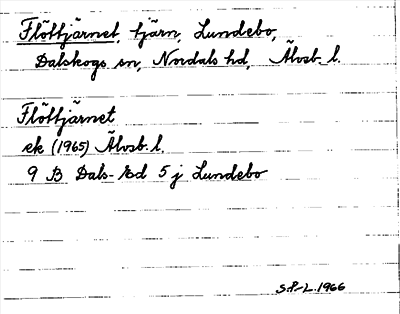 Flöttjärnet, tjärn, Lundebo,
Dalskogs sn, Nordals hd, Älvsb. l.
Flöttjärnet
ek (1965) Älvsb. l.
9 B Dals-Ed 5 j Lundebo
S.P-L. 1966